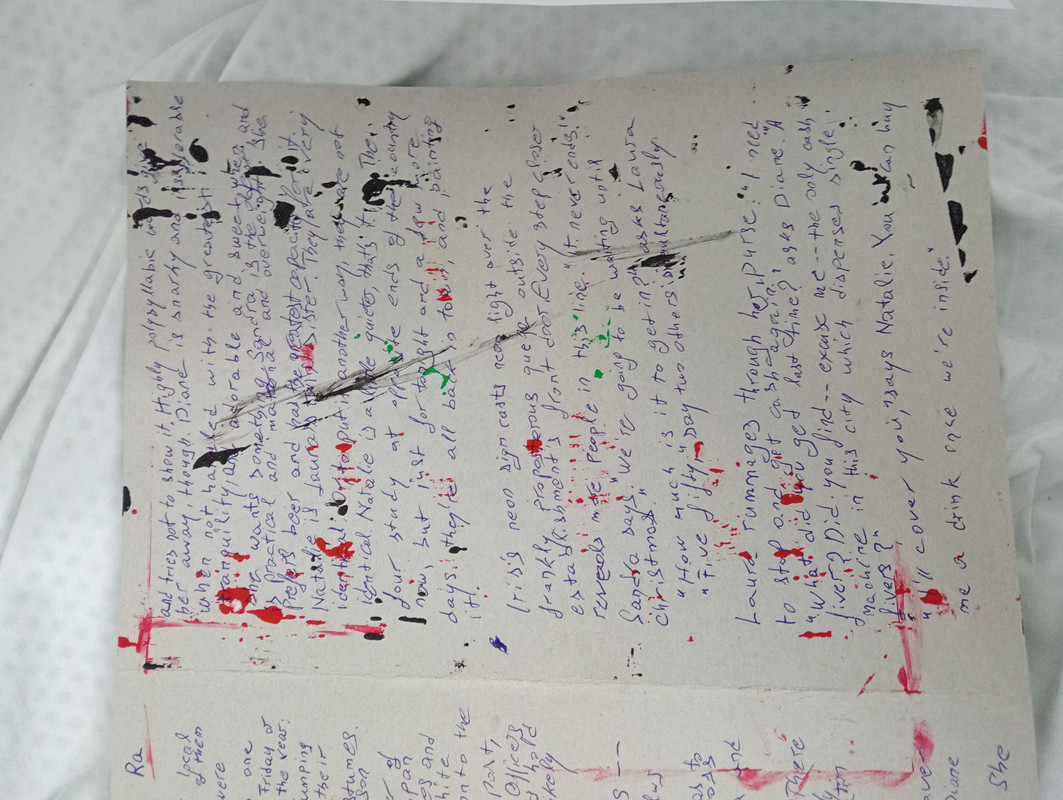 Ra
local
of them
were
one
Friday of
the year:
umping
their
stumes.
son
er of
pan
es and
hite
on to the
post,
Officers
d hold
kely
as to
und
There
She
and tries not to show it. Highly polysyllabic words give
her away, though. Diane is snarky and insufferable
when not handled with the greatest
tranquility, and adorable and sweet when
she wants something. Sandra is the oldest and
as practical and maternal and overwrought. She
prefers beer and has the greatest capacity for it.
Natalie is Laura's twin sister. They are very
identical. Or, to put it another way, they are not
identical. Natalie is a little quieter, that's it. The
four study at opposite ends of the country
now, but just for tonight and a few more
days they're all back in town, and painting
it.
Iris's neon sign casts neon light over the
frankly preposterous queue outside the
establishment's front door. Every step closer
reveals more people in this line. "It never ends!"
Sandra says. "We're going to be waiting until
Christmas." "How much is it to get in?" asks Laura
"Five fifty," say two others simultaneously.
Laura rummages through her purse. "I need
to stop and get cash again."
"What did you get last time?" asks Diane. "A
fiver? Did you find-- excuse me-- the only cash
machine in this city which dispenses single
fivers?"
"I'll cover you," says Natalie. "You can buy
me a drink once we're inside."